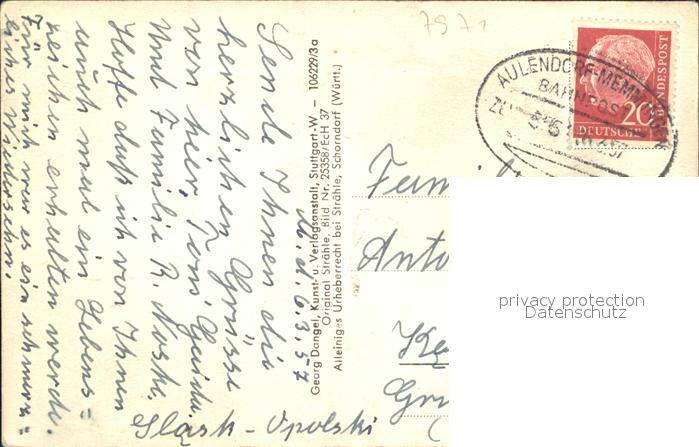 d. 6.3.57
Sende Ihnen die
herzlichen Grüsse
von hier, Tom, Guido,
und Familie R. Noske.
Hoffe daß ich von Ihnen
auch mal ein Lebens=
zeichen erhalten werde.
Für mich war es ein schmerz=
liches Wiedersehn.
Georg Dangel, Kunst- u. Verlagsanstalt, Stuttgart-W – 106229/3a
Original Strähle, Bild Nr. 25358/EcH 37
Alleiniges Urheberrecht bei Strähle, Schorndorf (Württ.)
7971
AULENDORF-MEMM
BAHNPOST
ZU
20
DEUTSCHE
BUNDESPOST
Fami
Anto
Ke
Gr
Śląsk - Opolski
(
privacy protection
Datenschutz